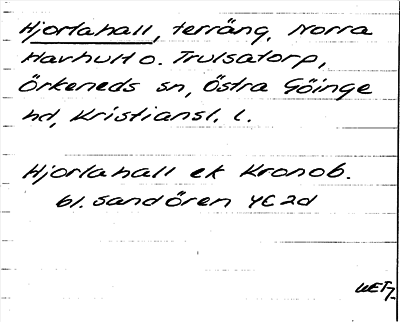 Hjortahall, terräng, Norra
Havhult o. Trulsatorp,
Örkeneds sn, Östra Göinge
hd, Kristiansl. l.
Hjortahall ek Kronob.
bl. Sandören 4E 2d